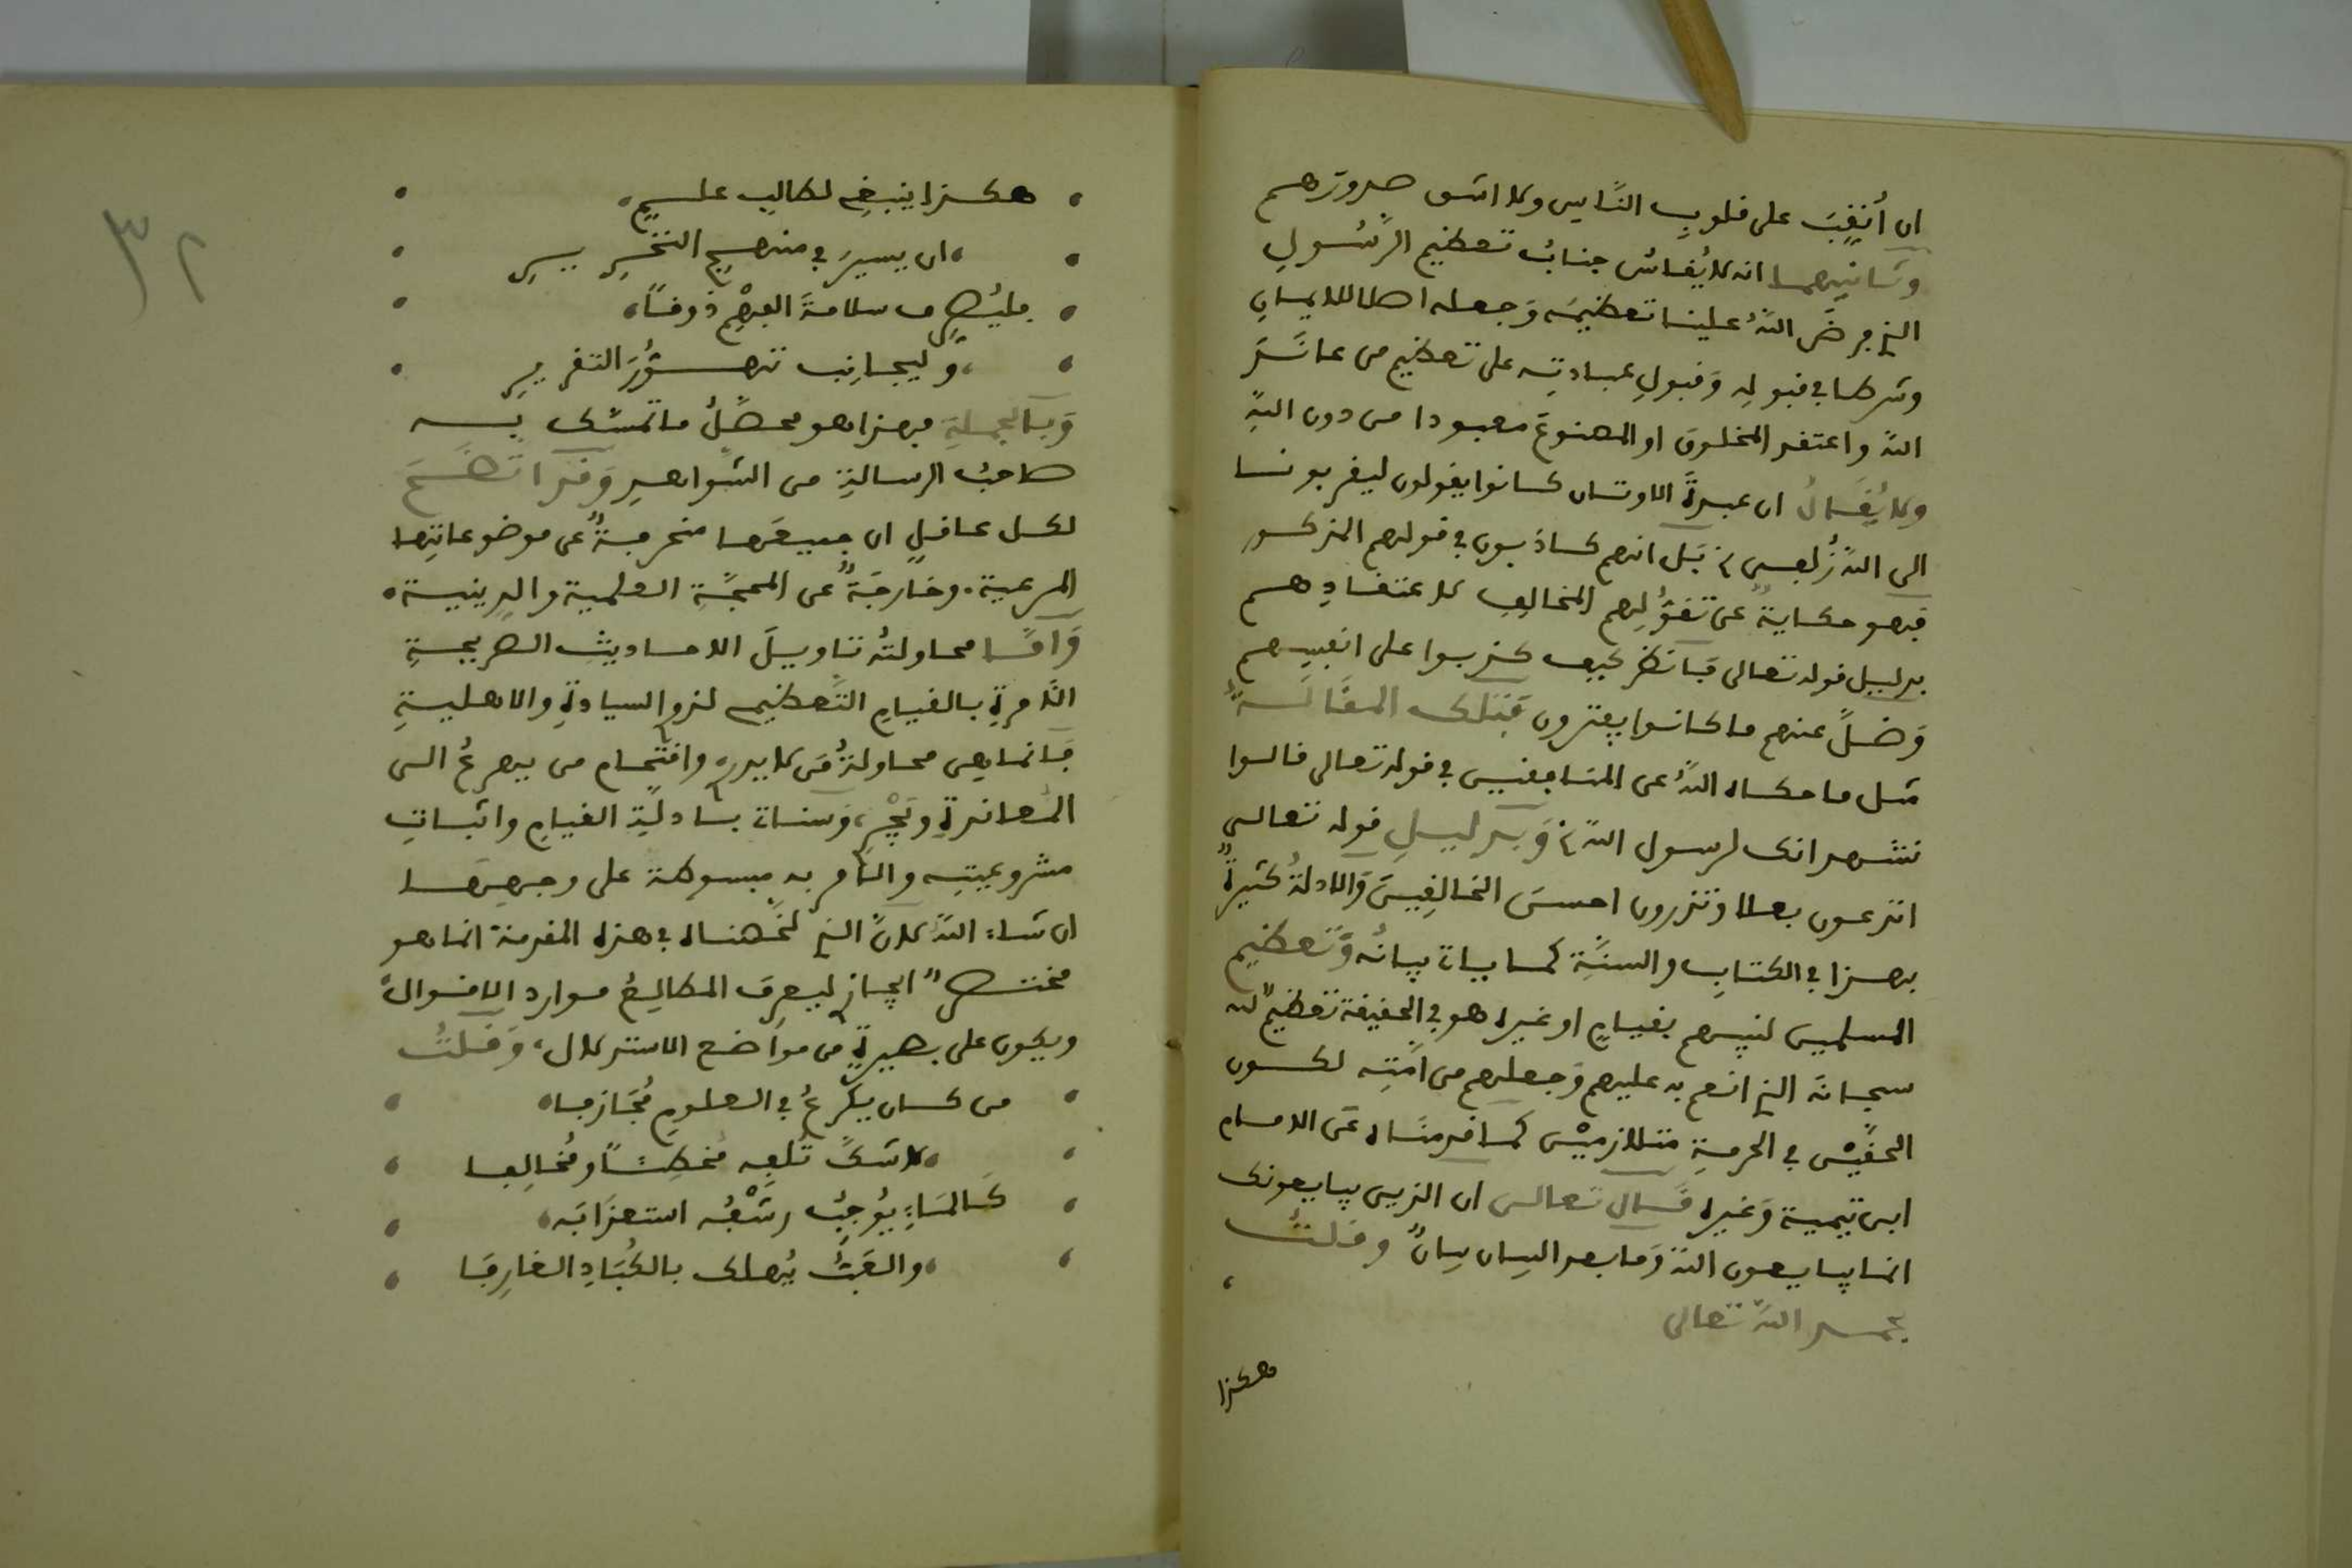 ان أنقب على قلوب الناس ولا اشق صدورهم
وثانيهما انه لا يقاس جناب تعظيم الرسول
الذي فرض الله علينا تعظيمه وجعله اصلا للايمان
وشرطا في قبوله وقبول عبادته على تعظيم من عاند
الله واعتقد المخلوق او المصنوع معبودا من دون الله
ولا يقال ان عبدة الاوثان كانوا يقولون ليقربونا
الى الله زلفى بل انهم كاذبون في قولهم المذكور
فهو حكاية عن تقولهم المخالف لاعتقادهم
بدليل قوله تعالى فانظر كيف كذبوا على انفسهم
وضل عنهم ما كانوا يفترون فتلك المقالة
مثل ما حكاه الله عن المنافقين في قوله تعالى قالوا
نشهد انك لرسول الله وبدليل قوله تعالى
اتدعون بعلا وتذرون احسن الخالقين والادلة كثيرة
بهذا في الكتاب والسنة كما ياتي بيانه وتعظيم
المسلمين لنبيهم بقيام او غيره هو في الحقيقة تعظيم لله
سبحانه الذي انعم به عليهم وجعلهم من امته لكون
الحقين في الحرمة متلازمين كما قدمناه عن الامام
ابن تيمية وغيره قال تعالى ان الذين يبايعونك
انما يبايعون الله وما بعد البيان بيان وقلت
بحمد الله تعالى
هكذا
٣٢
هكذا ينبغي لطالب علم
ان يسير في منهج التحرير
فليصرف سلامة الفهم ذوقا
وليجانب تهور التقرير
وبالجملة فهذا هو محصل ما تمسك به
صاحب الرسالة من الشواهد وقد اتضح
لكل عاقل ان جميعها منحرفة عن موضوعاتها
المرعية. وخارجة عن المحجة العلمية والدينية.
واما محاولته تاويل الاحاديث الصريحة
الآمرة بالقيام التعظيمي لذو السيادة والاهلية
فانما هي محاولة من لا يدري واقتحام من يهرع الى
المعاندة ويجري، وسنات بادلة القيام واثبات
مشروعيته والامر به مبسوطة على وجهها
ان شاء الله لان الذي لخصناه في هذه المقدمة انما هو
مختصر ايجاز ليعرف المطالع موارد الاقوال
ويكون على بصيرة من مواضع الاستدلال، وقلت
من كان يكرع في العلوم مجازفا
لا شك تلفه مخطئا ومخالفا
كالماء يوجب رشفه استعذابه
والعب يهلك بالكباد الغارفا